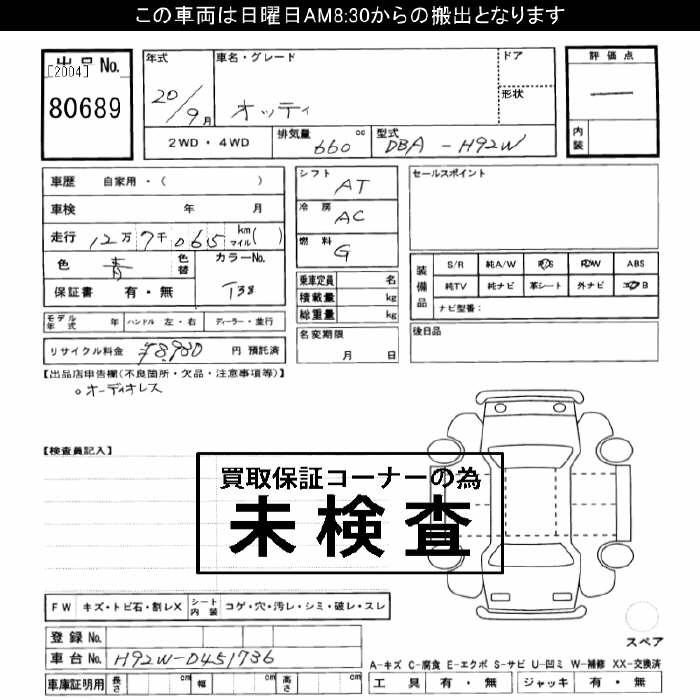 この車両は日曜日AM8:30からの搬出となります
出品No.
[2004]
80689
年式
20/9月
車名・グレード
オッティ
ドア
形状
評価点
内装
2WD・4WD
排気量 660 cc
型式 DBA-H92W
車歴 自家用・( )
車検 年 月
走行 12万7千065 km マイル( )
色 青 色替
カラーNo. T38
保証書 有・無
モデル年式 年 ハンドル 左・右 ディーラー・並行
リサイクル料金 ¥8,980 円 預託済
シフト AT
冷房 AC
燃料 G
乗車定員 名
積載量 kg
総重量 kg
名変期限
月 日
セールスポイント
装備品
S/R 純A/W P/S P/W ABS
純TV 純ナビ 革シート 外ナビ エアB
ナビ型番:
後日品
【出品店申告欄(不良箇所・欠品・注意事項等)】
○オーディオレス
【検査員記入】
買取保証コーナーの為
未検査
FW キズ・トビ石・割レX シート内装 コゲ・穴・汚レ・シミ・破レ・スレ
登録No.
車台No. H92W-D451736
車庫証明用 長さ cm 幅 cm 高さ cm
スペア
A-キズ C-腐食 E-エクボ S-サビ U-凹ミ W-補修 XX-交換済
工具 有・無 ジャッキ 有・無